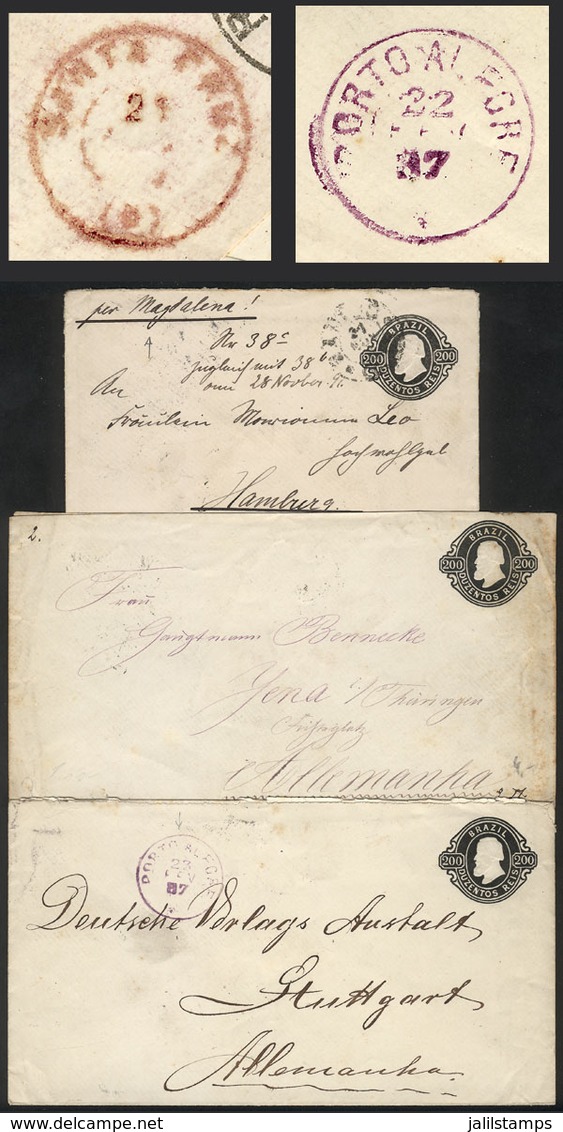 SANTA CRUZ
21
PORTO ALEGRE
22
FEV
87
per Magdalena!
Nr 38c
zugleich mit 38b
vom 28 Novber 91
An
Fräulein Leo
Hamburg.
BRAZIL
200 200
DUZENTOS REIS
2.
Frau
Hauptmann Bennecke
Jena i/Thüringen
Allemanha
BRAZIL
200 200
DUZENTOS REIS
PORTO ALEGRE
22
FEV
87
Deutsche Verlags Anstalt
Stuttgart
Allemanha
BRAZIL
200 200
DUZENTOS REIS
www.delcampe.net
jalilstamps